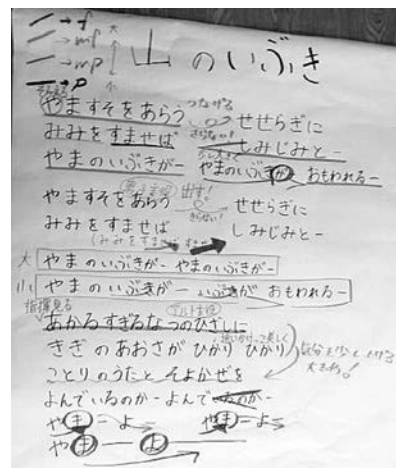 → f
→ mf 大
→ mp
→ p 小
山のいぶき
そろえる
やますそをあらう つなげる せせらぎに
きらない!
みみをすませば しみじみとー
やまのいぶきがー やまのいぶきが おもわれるー
やますそをあらう 出す! せせらぎに
きらない!
みみをすませば しみじみとー
(みみをすませば
大 やまのいぶきがー やまのいぶきがー
小 やまのいぶきがー いぶきが おもわれるー
指揮見る アルト主役
あかるすぎるなつのひざしに
きぎのあおさが ひかり ひかり
ことりのうたと そよかぜを 大きめ!
よんでいるのかー よんでいるのかー
やまーよ やまーよ
やまーよー